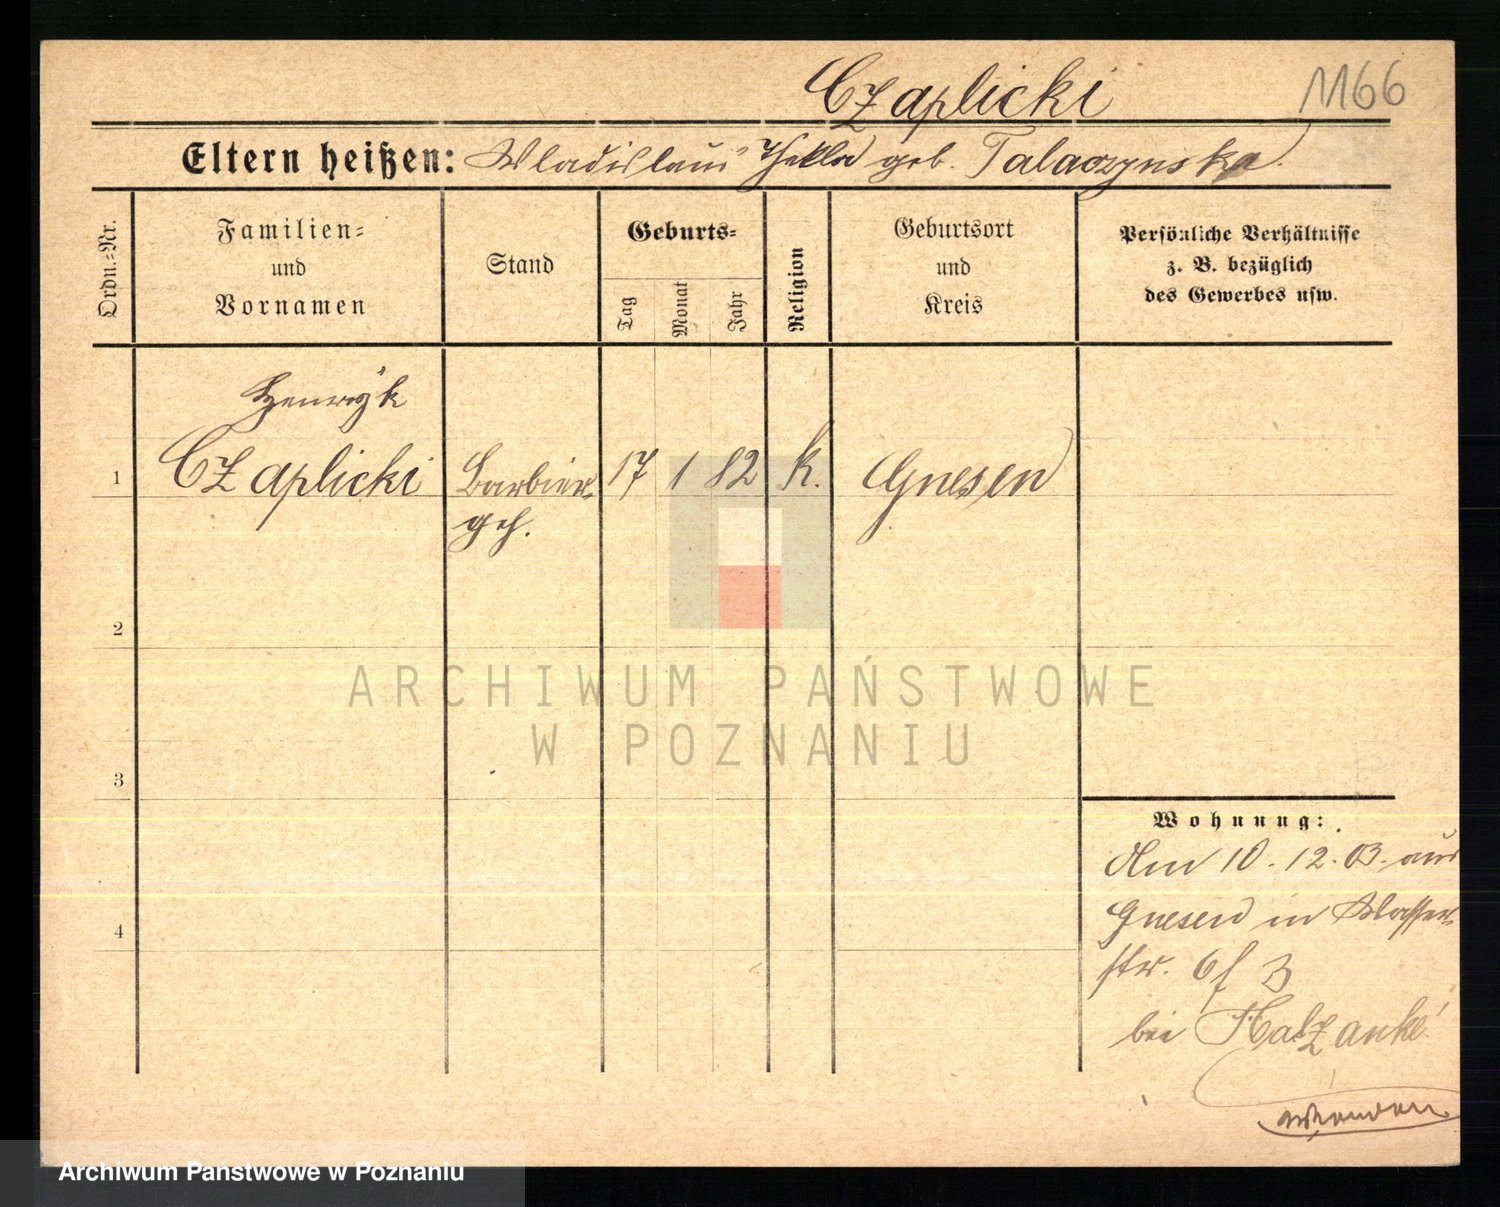 Czaplicki 1166
Eltern heißen: Wladislaus Thekla geb. Talaczynska.
Ordn.-Nr.
Familien-
und
Vornamen
Stand
Geburts-
Tag
Monat
Jahr
Religion
Geburtsort
und
Kreis
Persönliche Verhältnisse
z. B. bezüglich
des Gewerbes usw.
Henryk
1 Czaplicki Barbier 17 1 82 k. Gnesen
geh.
2
3
4
ARCHIWUM PAŃSTWOWE
W POZNANIU
Wohnung:
Am 10. 12. 03. aus
Gnesen in Wasser
str. 6 3
bei
Archiwum Państwowe w Poznaniu